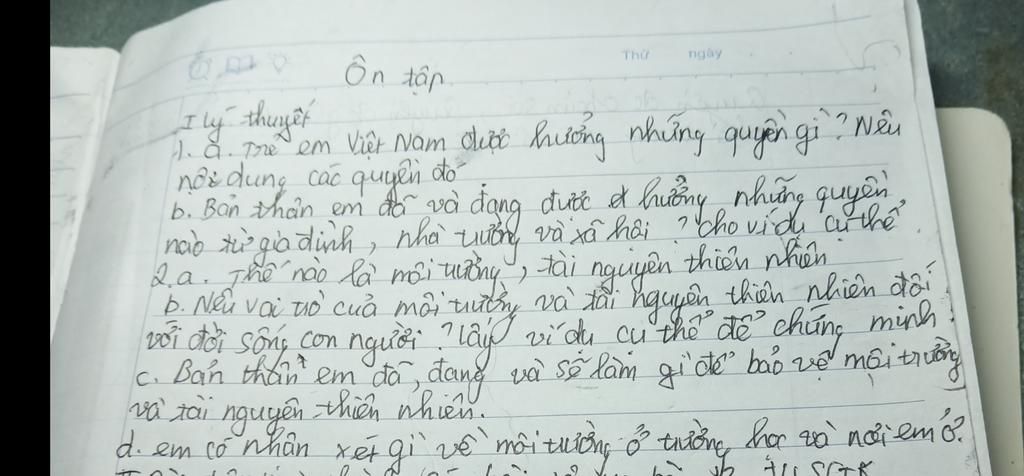 Thứ ngày
Ôn tập
I lý thuyết
1. a. Trẻ em Việt Nam được hưởng những quyền gì? Nêu
nội dung các quyền đó
b. Bản thân em đã và đang được hưởng những quyền
nào từ gia đình, nhà trường và xã hội? cho ví dụ cụ thể
2.a. Thế nào là môi trường, tài nguyên thiên nhiên
b. Nêu vai trò của môi trường và tài nguyên thiên nhiên đối
với đời sống con người? lấy ví dụ cụ thể để chứng minh.
c. Bản thân em đã, đang và sẽ làm gì để bảo vệ môi trường
và tài nguyên thiên nhiên.
d. em có nhận xét gì về môi trường ở trường học và nơi em ở?
SGK